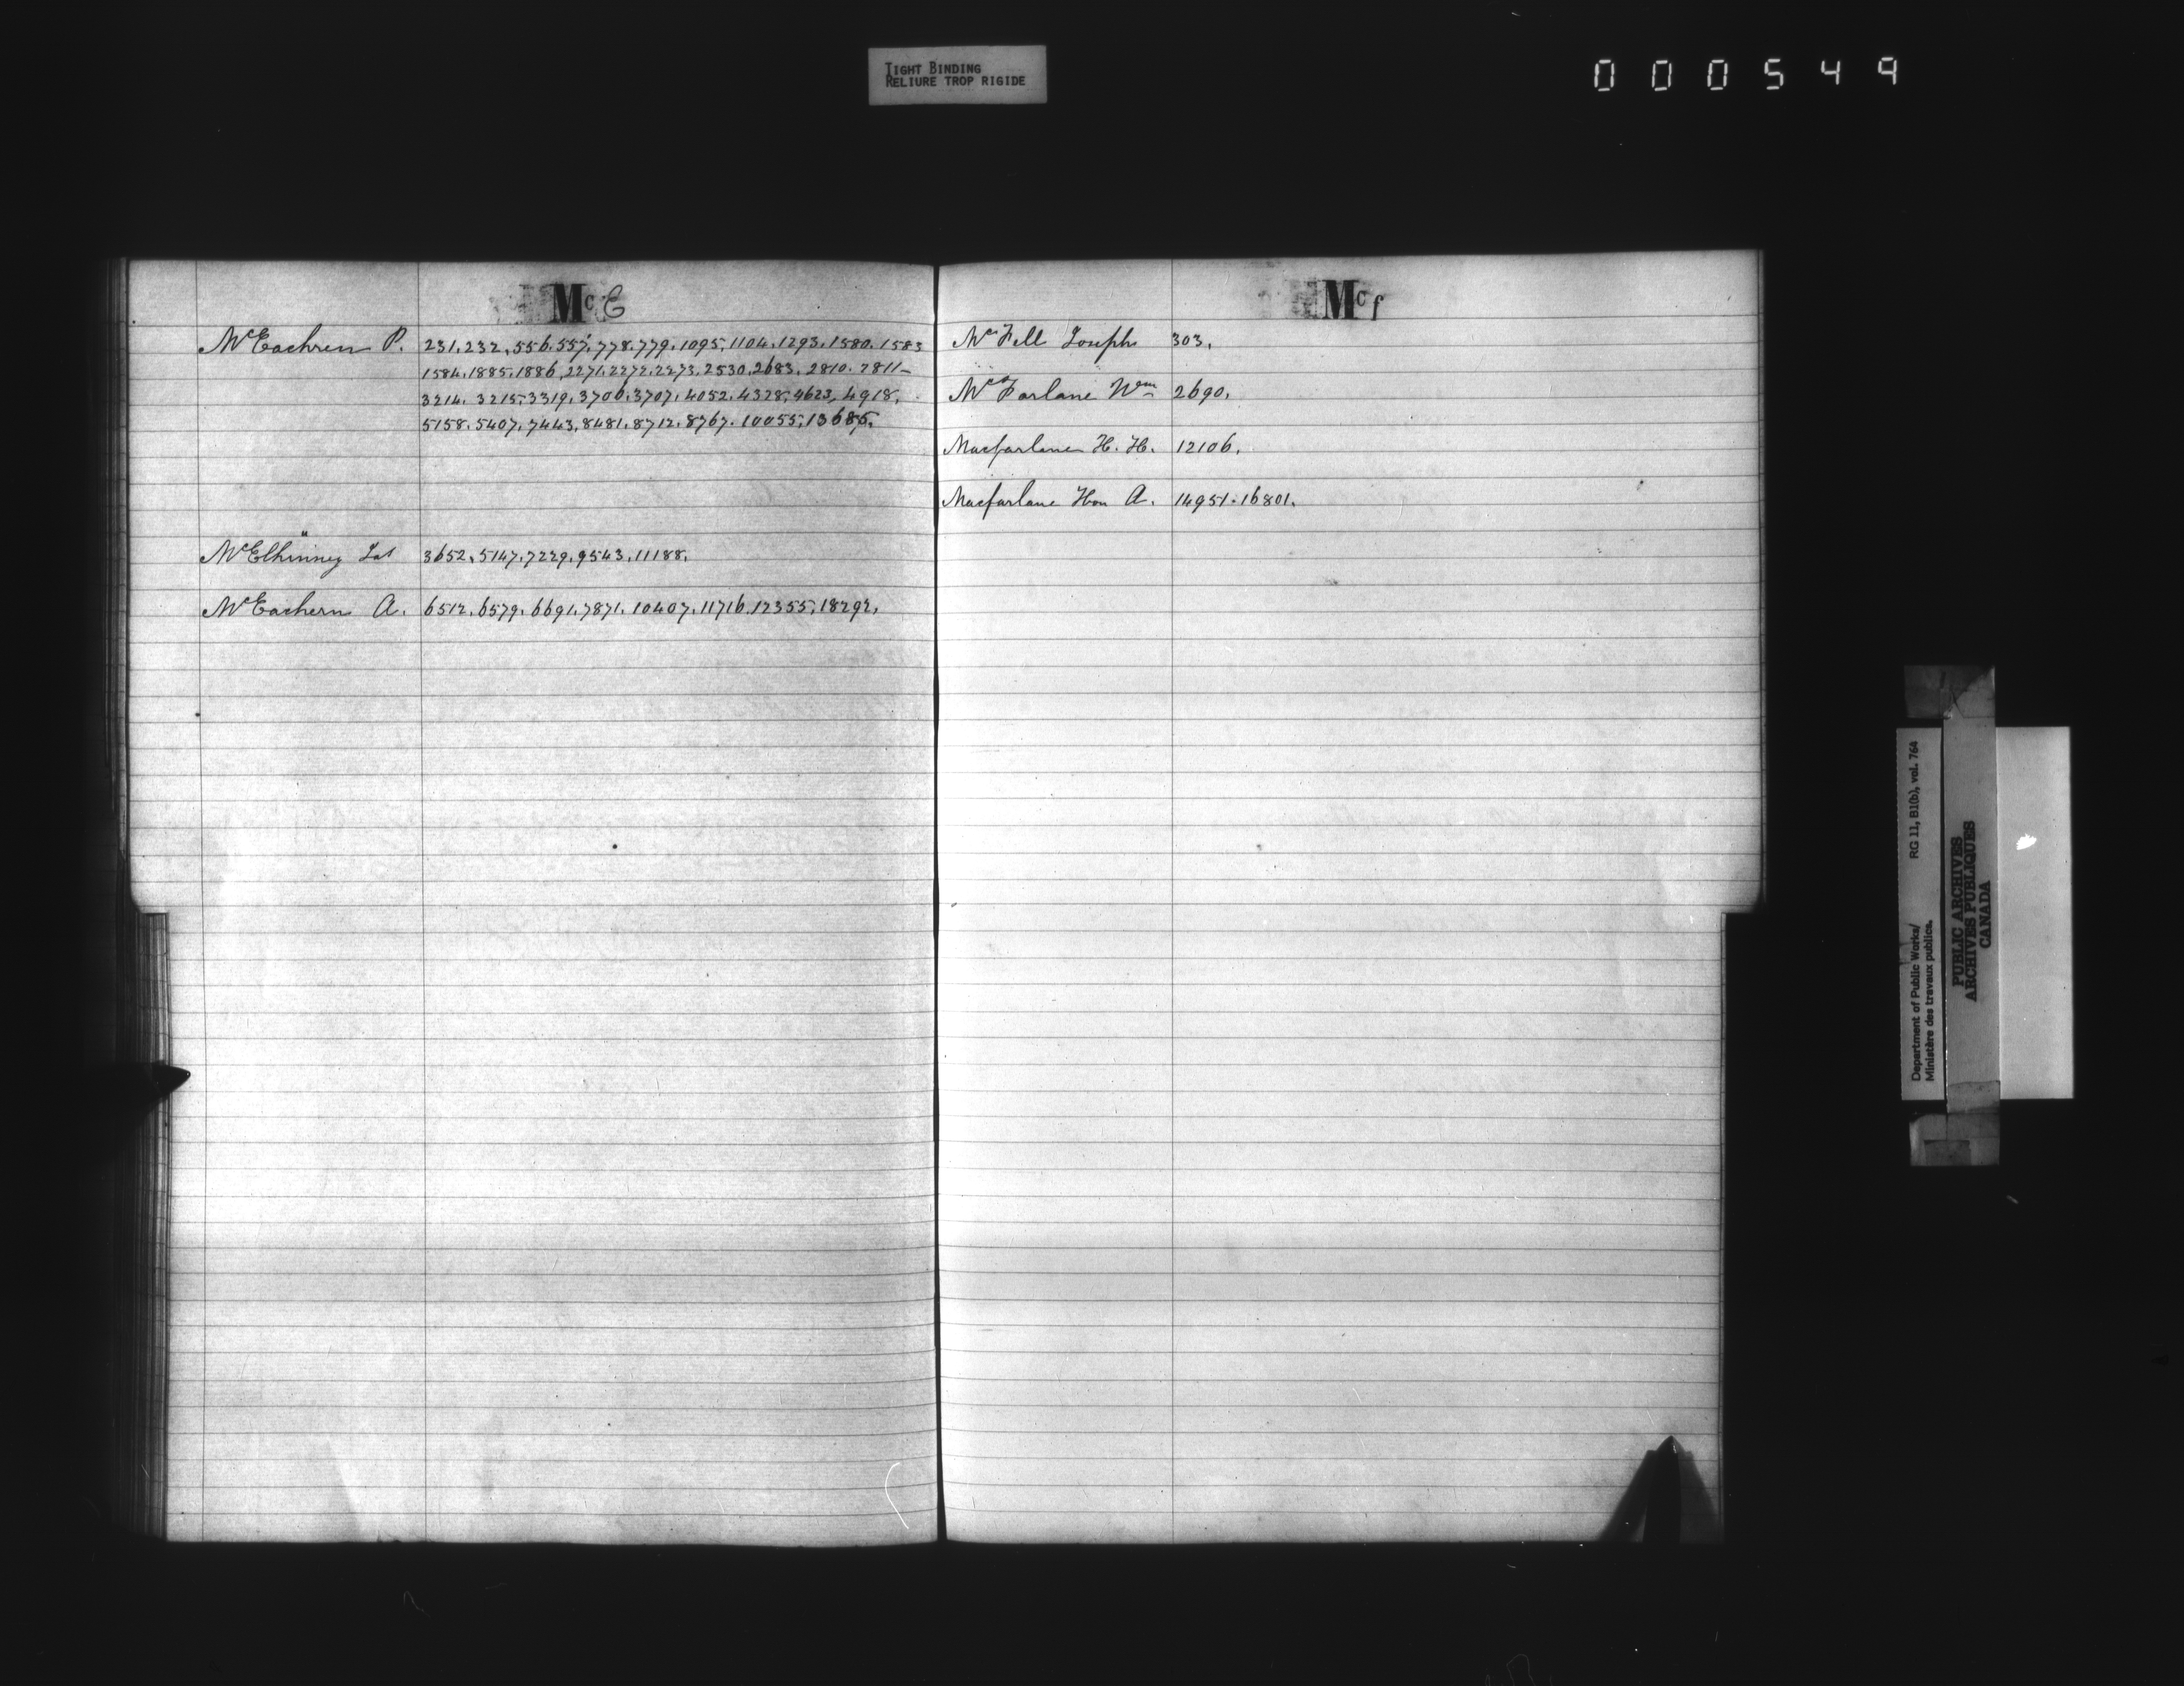 TIGHT BINDING
RELIURE TROP RIGIDE
000549
Mc E
McEachren P. 231. 232. 556. 557. 778. 779. 1095. 1104. 1293. 1580. 1583
1584. 1885. 1886. 2271. 2272. 2273. 2530. 2683. 2810. 2811-
3214. 3215. 3319. 3706. 3707. 4052. 4328. 4623. 4918.
5158. 5407. 7443. 8481. 8712. 8767. 10055. 13685.
McElhinney Jas 3652. 5147. 7229. 9543. 11188.
McEachern A. 6512. 6579. 6691. 7871. 10407. 11716. 12355. 18292.
Mc f
McFell Joseph 303.
McFarlane Wm 2690.
Macfarlane H. H. 12106.
Macfarlane Hon A. 14951. 16801.
Department of Public Works/ RG 11, B1(b), vol. 764
Ministère des travaux publics.
PUBLIC ARCHIVES
ARCHIVES PUBLIQUES
CANADA